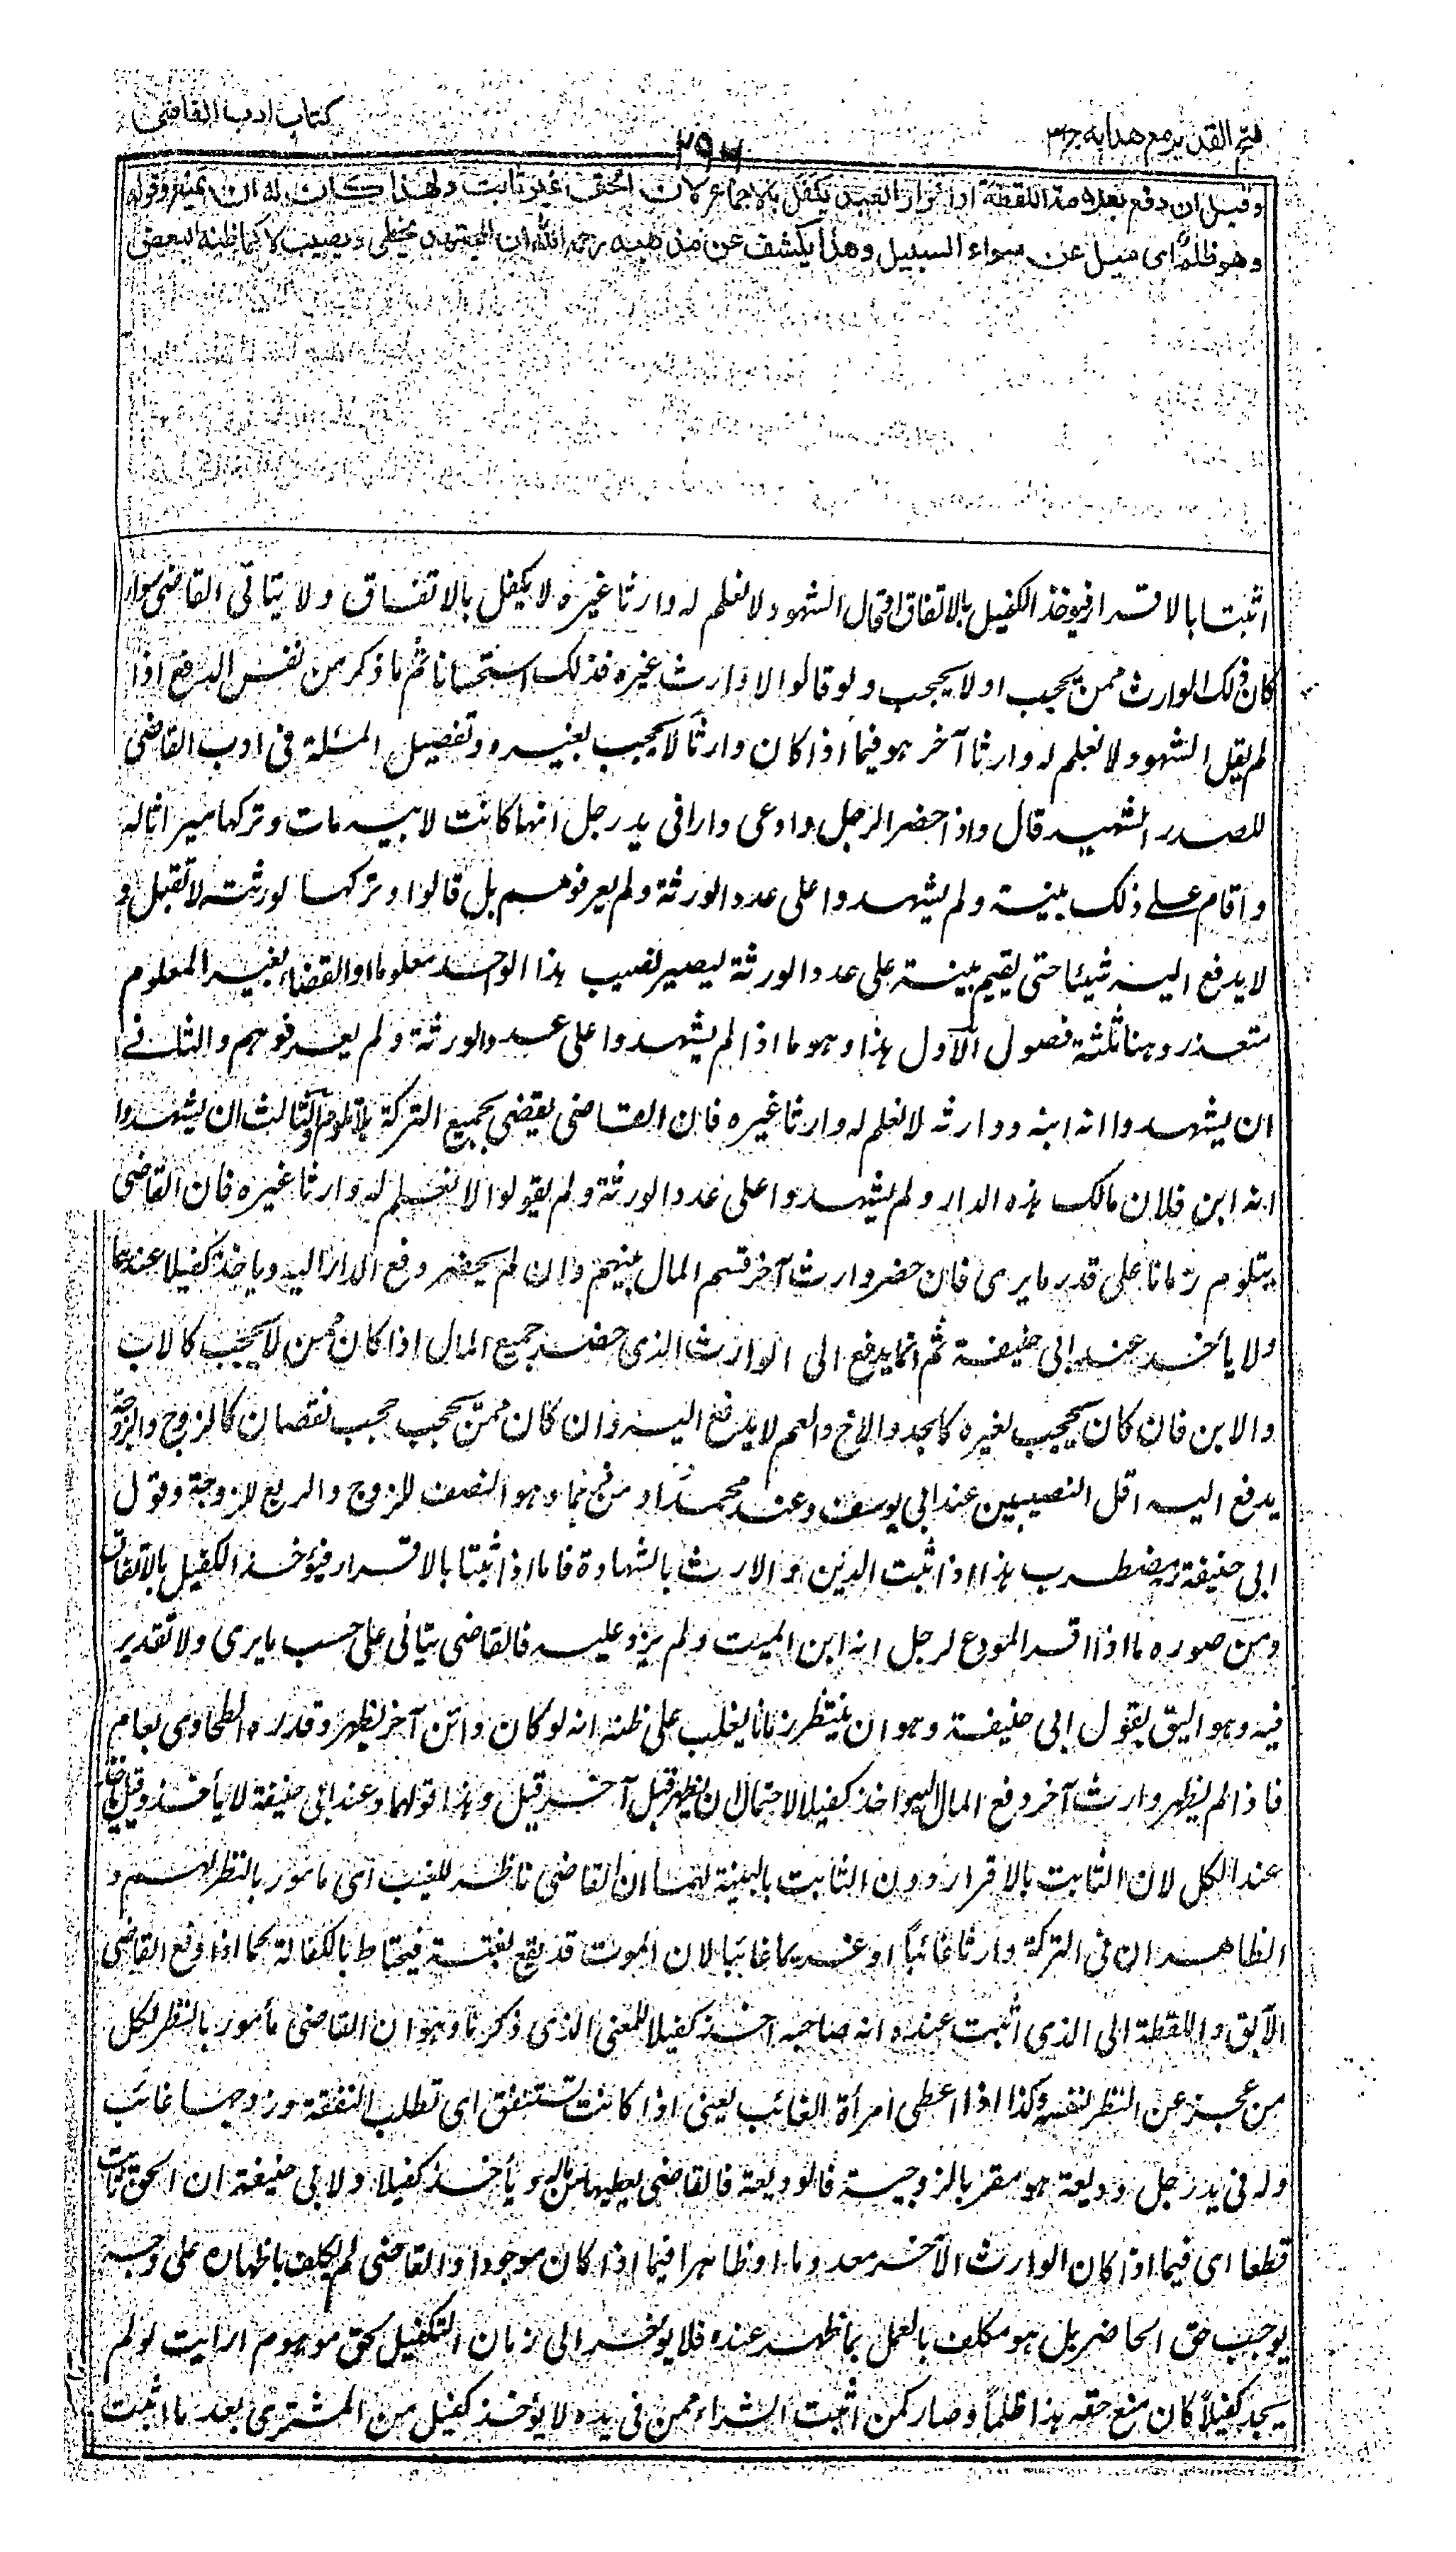 فتح القدير مع هدايه ج٣
٢٩٦
كتاب ادب القاضى
وقيل ان دفع بعلامة اللقطة او اقرار العبد يكفل بالاجماع لان الحق غير ثابت ولهذا كان له ان يمنع وقوله
وهو ظلم اى ميل عن سواء السبيل وهذا يكشف عن مذهبه رحمه الله ان المجتهد يخطى ويصيب لا كما ظنه البعض
اثبتا بالاقرار فيوخذ الكفيل بالاتفاق اقال الشهود لا نعلم له وارثا غيره لا يكفل بالاتفاق ولا يتأنى القاضى سواء
كان ذلك الوارث ممن يحجب او لا يحجب ولو قالوا لا وارث غيره فذلك استحسانا ثم ما ذكر من نفس الدفع اذا
لم يقل الشهود لا نعلم له وارثا آخر هو فيما اذا كان وارثا لا يحجب بغيره وتفصيل المسئلة فى ادب القاضى
للصدر الشهيد قال واذا حضر الرجل وادعى دارا فى يد رجل انها كانت لابيه مات وتركها ميراثا له
واقام على ذلك بينة ولم يشهدوا على عدد الورثة ولم يعرفوهم بل قالوا وتركها لورثته لا تقبل و
لا يدفع اليه شيئا حتى يقيم بينة على عدد الورثة ليصير نصيب هذا الواحد معلوما والقضاء بغير المعلوم
متعذر وهنا ثلثة فصول الاول هذا وهو ما اذا لم يشهدوا على عدد الورثة ولم يعرفوهم والثانى
ان يشهدوا انه ابنه ووارثه لا نعلم له وارثا غيره فان القاضى يقضى بجميع التركة بلا تلوم والثالث ان يشهدوا
انه ابن فلان مالك هذه الدار ولم يشهدوا على عدد الورثة ولم يقولوا لا نعلم له وارثا غيره فان القاضى
يتلوم زمانا على قدر ما يرى فان حضر وارث آخر قسم المال بينهم وان لم يحضر دفع الدار اليه وياخذ كفيلا عندهما
ولا يأخذ عند ابى حنيفة ثم انما يدفع الى الوارث الذى حضر جميع المال اذا كان ممن لا يحجب كالاب
والابن فان كان يحجب بغيره كالجد والاخ والعم لا يدفع اليه وان كان ممن يحجب حجب نقصان كالزوج والزوجة
يدفع اليه اقل النصيبين عند ابى يوسف وعند محمد اوفرهما وهو النصف للزوج والربع للزوجة وقول
ابى حنيفة مضطرب هذا اذا ثبت الدين والارث بالشهادة فاما اذا ثبتا بالاقرار فيؤخذ الكفيل بالاتفاق
ومن صوره ما اذا اقر المودع لرجل انه ابن الميت ولم يزد عليه فالقاضى يتأنى على حسب ما يرى ولا تقدير
فيه وهو اليق بقول ابى حنيفة وهو ان ينتظر زمانا يغلب على ظنه انه لو كان وارث آخر يظهر وقدره الطحاوى بعام
فاذا لم يظهر وارث آخر دفع المال اليه واخذ كفيلا لاحتمال ان يظهر قبل آخر قيل وهذا قولهما وعند ابى حنيفة لا يأخذ وقيل ياخذ
عند الكل لان الثابت بالاقرار دون الثابت بالبينة لهما ان القاضى ناظر للغيب اى مامور بالنظر لهم و
الظاهر ان فى التركة وارثا غائبا او غريما غائبا لان الموت قد يقع بغتة فيحتاط بالكفالة كما اذا دفع القاضى
الآبق واللقطة الى الذى اثبت عنده انه صاحبه اخذ كفيلا للمعنى الذى ذكرنا وهو ان القاضى مأمور بالنظر لكل
من عجز عن النظر لنفسه وكذا اذا اعطى امرأة الغائب يعنى اذا كانت تستنفق اى تطلب النفقة وزوجها غائب
وله فى يد رجل وديعة هو مقر بالزوجية فالوديعة فالقاضى يعطيها من ماله ويأخذ كفيلا ولابى حنيفة ان الحق ثابت
قطعا اى فيما اذا كان الوارث الآخر معدوما او ظاهرا فيما اذا كان موجودا والقاضى لم يكلف باظهاره على وجه
يوجب حق الحاضر بل هو مكلف بالعمل بما ظهر عنده فلا يوخر الى زمان التكفيل لحق موهوم ارايت لو لم
يجد كفيلا كان منع حقه هذا ظلما وصار كمن اثبت الشراء ممن فى يده لا يؤخذ كفيل من المشترى بعد ما اثبت